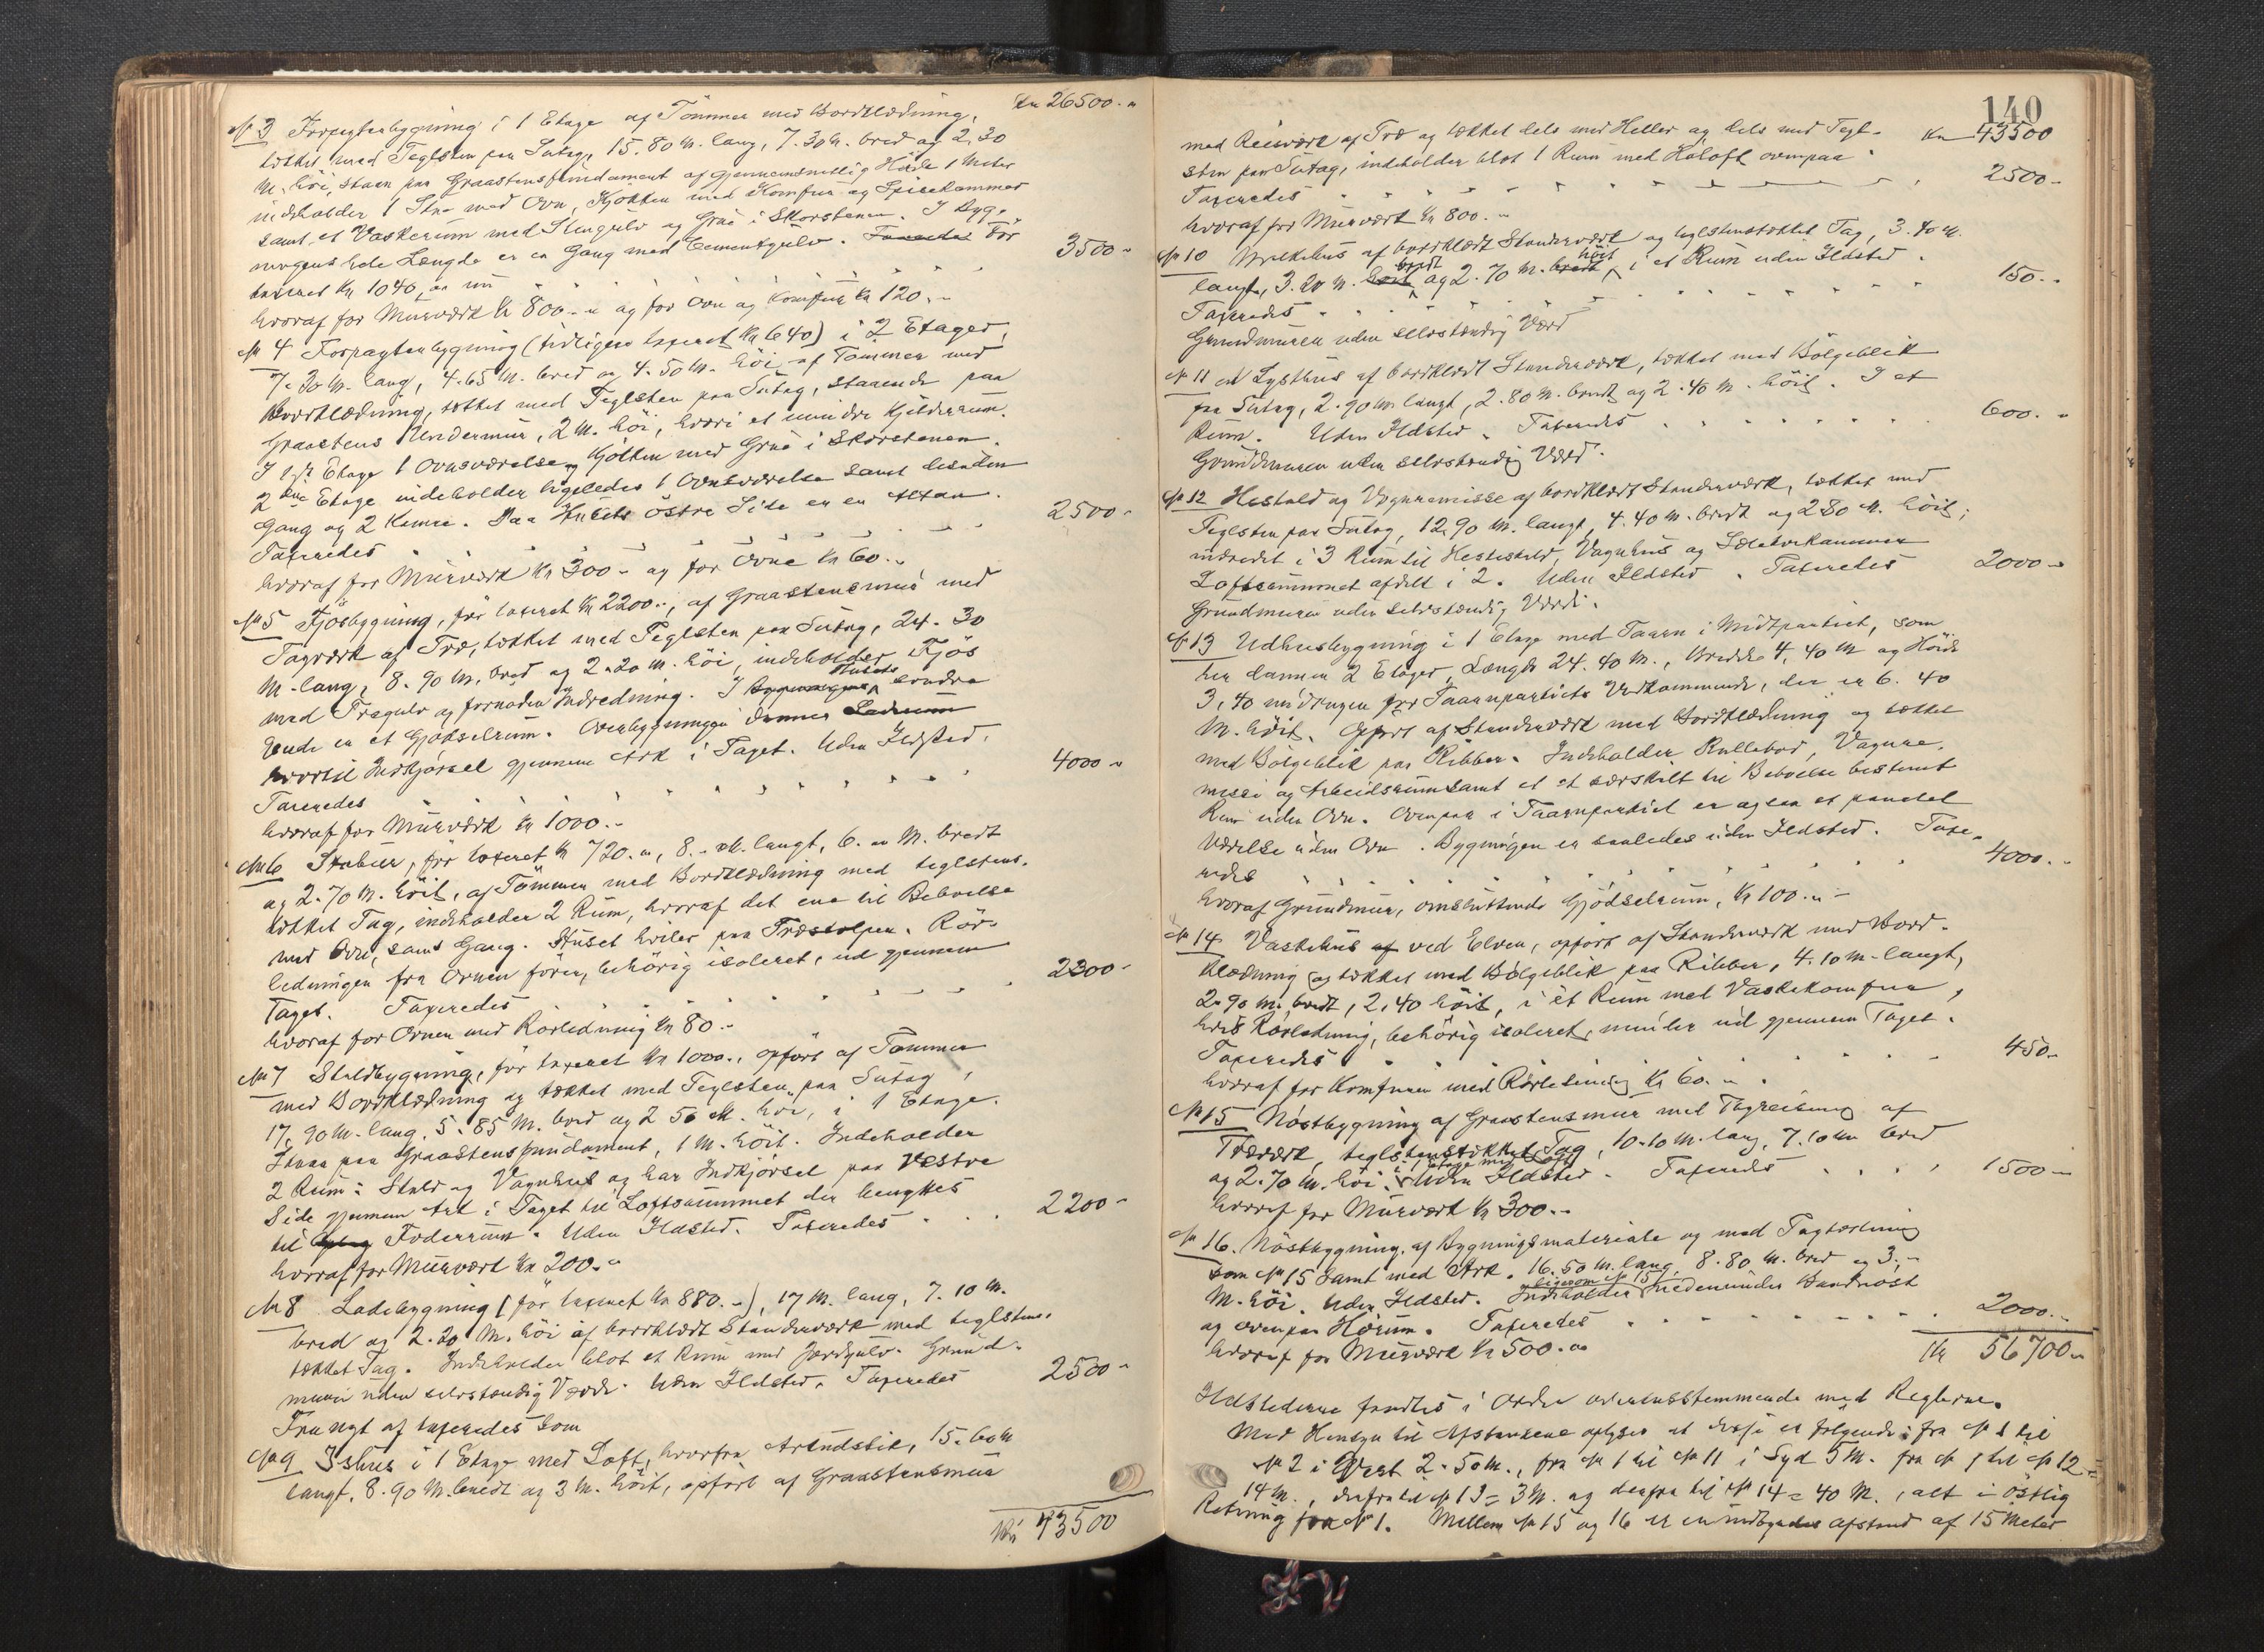 Kr 26500.-
№ 3 Forpagterbygning i 1 Etage af Tømmer med Bordklædning,
tækket med Teglsten paa Sutag, 15.80 M. lang, 7.30 M. bred og 2,30
M. høi, staar paa Graastensfundament af gjennemsnitlig Høide 1 Meter
indeholder 1 Stue med Ovn, Kjøkken med Komfur og Spisekammer
samt et Vaskerum med Stengulv og Grue i Skorstenen. I Byg-
ningens hele Længde er en Gang med Cementgulv. Taxeredes Før
taxeret Kr 1040, nu 3500-
hvoraf for Murværk Kr 800.- og for Ovn og Komfur Kr 120.-
№ 4 Forpagterbygning (tidligere taxeret Kr 640) i 2 Etager,
7.30 M. lang, 4.65 M. bred og 4.50 M. høi af Tømmer med
Bordklædning, tækket med Teglsten paa Sutag, staaende paa
Graastens Undermur, 2 M. høi, hvori et mindre Kjelderrum.
I 1ste Etage 1 Ovnsværelse, Kjøkken med Grue i Skorstenen.
2den Etage indeholder ligeledes 1 Ovnsværelse samt desuden
Gang og 2 Kamre. Paa Husets østre Side er en Altan.
Taxeredes 2500-
hvoraf for Murværk Kr 300- og for Ovne Kr 60.-
№ 5 Fjøsbygning, før taxeret Kr 2200.-, af Graastensmur med
Tagværk af Træ, tækket med Teglsten paa Sutag, 24.30
M. lang, 8.90 M. bred og 2.20 M. høi, indeholder Fjøs
med Trægulv og fornøden Indredning. I Bygningens Husets søndre
Ende er et Gjødselrum. Overbygningen danner Laderum
hvortil Indkjørsel gjennem Ark i Taget. Uden Ildsted.
Taxeredes 4000-
hvoraf for Murværk Kr 1000.-
№ 6 Stabur, før taxeret Kr 720.-, 8.- M. langt, 6.- M. bredt
og 2.70 M. høit, af Tømmer med Bordklædning med teglstens-
tækket Tag, indeholder 2 Rum, hvoraf det ene til Beboelse
med Ovn, samt Gang. Huset hviler paa Træstolper. Rør-
ledningen fra Ovnen fører, behørig isoleret, ud gjennem
Taget. Taxeredes 2300-
hvoraf for Ovnen med Rørledning Kr 80.-
№ 7 Staldbygning, før taxeret Kr 1000.-, opført af Tømmer
med Bordklædning og tækket med Teglsten paa Sutag,
17.90 M. lang, 5.85 M. bred og 2.50 M. høi, i 1 Etage.
Staar paa Graastensfundament, 1 M. høit. Indeholder
2 Rum: Stald og Vognhus og har Indkjørsel paa Vestre
Side gjennem Ark i Taget til Loftsrummet der benyttes
til Foderrum. Uden Ildsted. Taxeredes 2200-
hvoraf for Murværk Kr 200.-
№ 8 Ladebygning (før taxeret Kr 880.-), 17 M. lang, 7.10 M.
bred og 2.20 M. høi af bordklædt Stænderværk med teglstens-
tækket Tag. Indeholder blot et Rum med Jordgulv. Grund-
muren uden selvstændig Værdi. Uden Ildsted. Taxeredes 2500-
Fra nyt af taxeredes som
№ 9 Ishus i 1 Etage med Loft, hvorfra Arkudstik, 15.60 M
langt, 8.90 M. bredt og 3 M. høit, opført af Graastensmur
Kr 43500
140
med Reisværk af Træ og tækket dels med Heller og dels med Tegl- Kr 43500
sten paa Sutag, indeholder blot 1 Rum med Høloft ovenpaa.
Taxeredes 2500-
hvoraf for Murværk Kr 800.-
№ 10 af bordklædt Stænderværk og teglstenstækket Tag, 3.40 M.
langt, 3.20 M. høit bredt og 2.70 M. bredt høit i et Rum uden Ildsted.
Taxeredes 150.-
Grundmuren uden selvstændig Værd
№ 11 et Lysthus af bordklædt Stænderværk, tækket med Bølgeblik
paa Sutag, 2.90 M. langt, 2.80 M. bredt og 2.40 M. høit. I et
Rum. Uden Ildsted. Taxeredes 600.-
Grundmuren uden selvstændig Værd.
№ 12 Hestald og Vognremisse af bordklædt Stænderværk, tækket med
Teglsten paa Sutag, 12.90 M. langt, 4.40 M. bredt og 2.80 M. høit;
indredet i 3 Rum til Hestestald, Vognhus og Seletøikammer
Loftsrummet afdelt i 2. Uden Ildsted. Taxeredes 2000-
Grundmuren uden selvstændig Værdi.
№ 13 Udhusbygning i 1 Etage med Taarn i Midtpartiet, som
her danner 2 Etager, Længde 24.40 M., Bredde 4,40 M og Høide
3,40 undtagen for Taarnpartiets Vedkommende, der er 6.40
M. høit. Opført af Stænderværk med Bordklædning og tækket
med Bølgeblik paa Ribber. Indeholder Rullebod, Vognre-
misse og Arbeidsrum samt et et særskilt til Beboelse bestemt
Rum uden Ovn. Ovenpaa i Taarnpartiet er ogsaa et panelet
Værelse uden Ovn. Bygningen er saaledes uden Ildsted. Taxe-
redes 4000.-
hvoraf Grundmur, omsluttende Gjødselrum, Kr 100.-
№ 14 Vaskehus af ved Elven, opført af Stænderværk med Bord-
klædning og tækket med Bølgeblik paa Ribber, 4.10 M. langt,
2.90 M. bredt, 2,40 høit, i et Rum med Vaskekomfur,
hvis Rørledning, behørig isoleret, munder ud gjennem Taget.
Taxeredes 450-
hvoraf for Komfuren med Rørledning Kr 60.-
№ 15 Nøstbygning af Graastensmur med Tagreisning af
Træværk, teglstenstækket Tag, 10.10 M. lang, 7.10 M bred
og 2.70 M. høi i 1 Etage med Loft. Uden Ildsted. Taxeredes 1500-
hvoraf for Murværk Kr 300.-
№ 16. Nøstbygning, af Bygningsmateriale og med Tagtækning
som № 15 samt med Ark. 16.50 M. lang, 8.80 M. bred og 3,-
M. høi. Uden Ildsted. Indeholder ligesom № 15 nedenunder Baadnøst
og ovenpaa Hørum. Taxeredes 2000.-
hvoraf for Murværk Kr 500.-
Kr 56700.-
Ildstederne fandtes i Orden overensstemmende med Reglerne.
Med Hensyn til Afstandene oplyses at disse er følgende: fra № 1 til
№ 2 i Vest 2.50 M., fra № 1 til № 11 i Syd 5 M. fra № 1 til № 12 =
14 M., derfra til № 13 = 3 M. og derfra til № 14 = 40 M., alt i østlig
Retning fra № 1. Mellem № 15 og 16 er en indbyrdes Afstand af 15 Meter